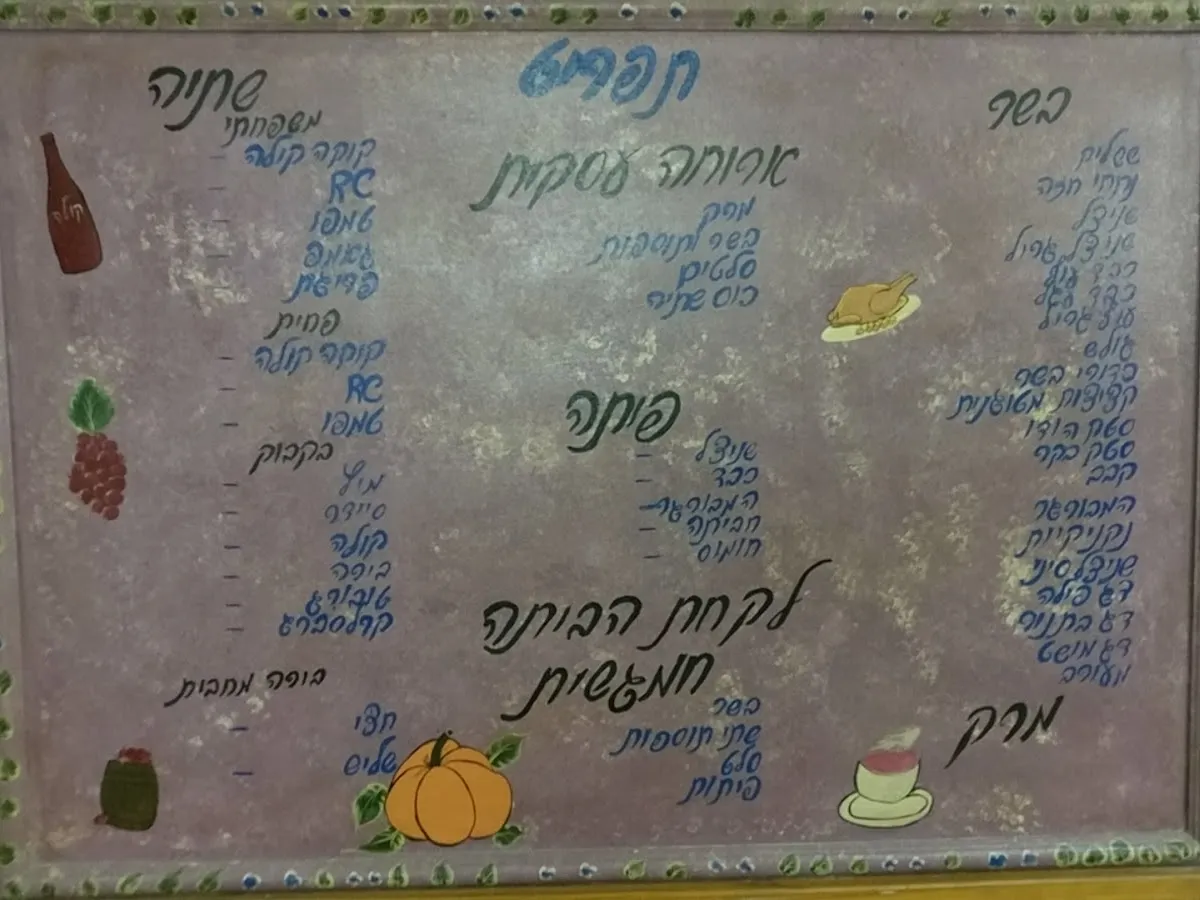 תפריט
בשר
שישליק
נתחי חזה
שניצל
שניצל גריל
כבד עוף
כבד עגל
עוף גריל
גולש
כדורי בשר
קציצות מטוגנית
סטק הודו
סטק בקר
קבב
המבורגר
נקניקיות
שניצל סיני
דג פילה
דג בתנור
דג מושט
מעורב
מרק
ארוחה עסקית
מרק
בשר ותוספות
סלטים
כוס שתיה
פיתה
שניצל -
כבד -
המבורגר -
חביתה -
חומוס -
לקחת הביתה
חמגשית
בשר
שתי תוספות
סלט
פיתות
שתיה
משפחתי
קוקה קולה -
RC -
טמפו -
גאמפ -
פריגת -
פחית
קוקה קולה -
RC -
טמפו -
בקבוק
מיץ -
סיידר -
קולה -
בירה -
טובורג -
קרלסברג -
בירה מחבית
חצי -
שליש -
קולה